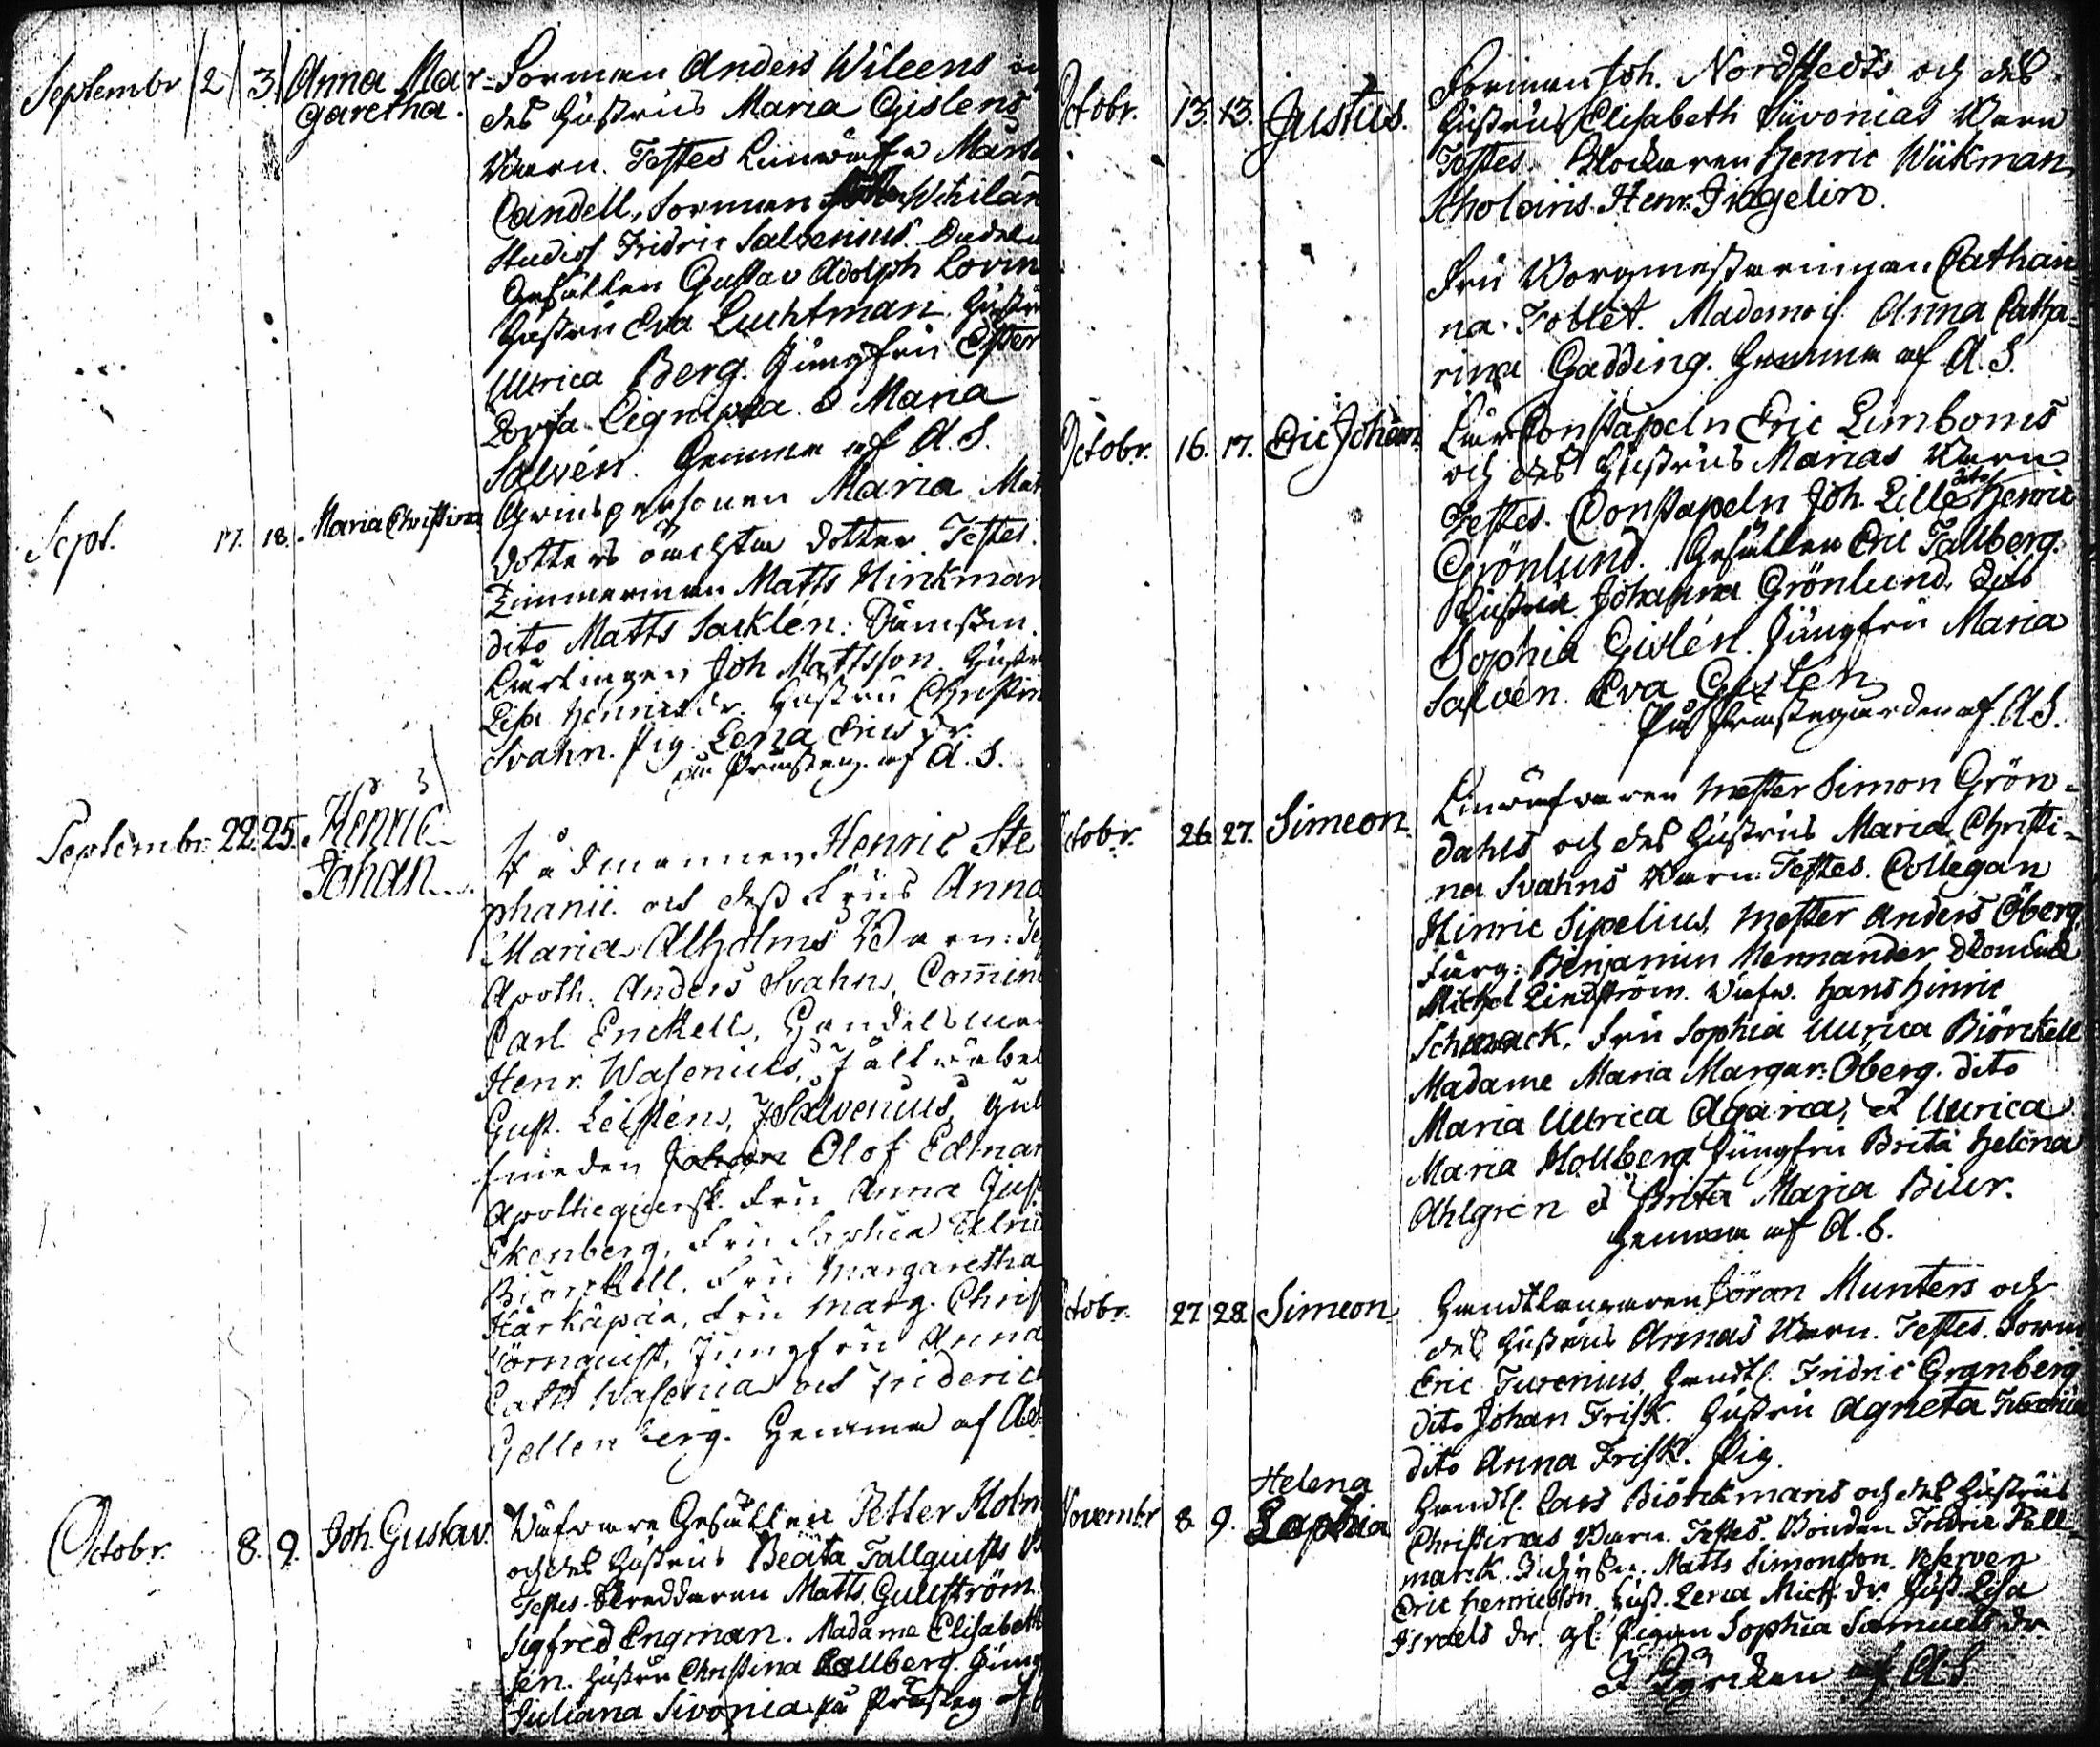 Septembr 2 3 Anna Mar- Sorman Anders Wileens och
garetha. des hustrus Maria Gislens
Barn. Testes Linwäfv Mårt
Candell, Sorman Wihlan
Studios Fridric Salvenius.
Gesällen Gustav Adolph Lovin
hustru Eva Luchtman. hustru
Ulrica Berg. Jungfru Ester
Lovisa Lignipæa & Maria
Salvén. Hemma af A. S.
Sept. 17. 18. Maria Christina Qvinspersonen Maria Mat
dotters oächta dotter. Testes.
Timmerman Matts Hinkman
dito Matts Sacklén:
Lärlingen Joh Mattsson. hustr
Lisa Henricsdr. hustru Christin
Svahn. Pig. Lena Ericsdr.
på Prästeg. af A. S.
Septembr. 22. 25. Henric Johan Rådmannen Henric Ste
phanii och dess Frus Anna
Maria Alholms Barn: Tes
Apoth. Anders Svahn, Commin
Carl Enckell, Handelsman
Henr. Wasenius, Fältväbel
Gust. Leistén, J Salvenius, Gul
smeden Olof Edman
Apothequersk. Fru Anna Just
Ekenberg, Fru Sophia Ulric
Biörckell, Fru Margaretha
Kärkäpää, Fru Marg. Christ
Törnquist, Jungfru Anna
Cath Wasenia och Frideric
Gellenberg. Hemma af Abr
Octobr. 8. 9. Joh. Gustav. Wäfvare Gesällen Petter Holm
och des hustrus Beata Tallquists B
Testes. Skreddaren Matts Gullström.
Sigfred Engman. Madame Elisabeth
hustru Christina Jung
Juliana Sivonia på Prästeg af
Octobr. 13. 13. Justus. Sorman Joh. Nordstedts och des
hustrus Elisabeth Sivonias Barn
Testes. Klockaren Henric Wiikman
Scholaris Henr. Fingelin.
Fru Borgmesterinnan Cathari=
na Foblet. Mademois. Anna Catha=
rina Gadding. Hemma af A. S.
Octobr. 16. 17. Eric Johan Constapeln Eric Limboms
och des hustrus Marias Barn
Testes. Constapeln Joh. Lille dito Henric
Grönlund. Gesällen Eric Tallberg.
Hustru Johanna Grönlund, dito
Sophia Gislén. Jungfru Maria
Salvén. Eva Gislén
På Prästegården af A S.
Octobr. 26. 27. Simeon. Linväfvaren Mester Simon Grön=
dahls och des hustrus Maria Christi=
na Svahns Barn. Testes. Collegan
Hinric Sipelius, Mester Anders Öberg
Färg: Benjamin Mennander
Michel Lindström. Wäfv. Hans Hinric
Fru Sophia Ulrica Biörckell
Madame Maria Margar: Öberg. dito
Maria Ulrica Agarica, & Ulrica
Maria Mollberg. Jungfru Brita Helena
Ahlgren & Brita Maria Biur.
hemma af A. S.
Octobr. 27 28 Simeon Handtlangaren Jöran Munters och
des hustrus Annas Barn. Testes. Sorm
Eric Turenius, handtl. Fridric Granberg
dito Johan Frisk. hustru Agneta
dito Anna Frisk. Pig.
Novembr 8. 9. Helena Sophia Handtl. Lars Biörckmans och des hustrus
Christinas Barn. Testes. Bonden Fridric Pell=
mark. Matts Simonsson. Reserven
Eric Henricsson. hust. Lena Mich. dr. Hust. Lisa
Israels dr. Pigan Sophia Samuels dr.
I Kyrckan af A. S.